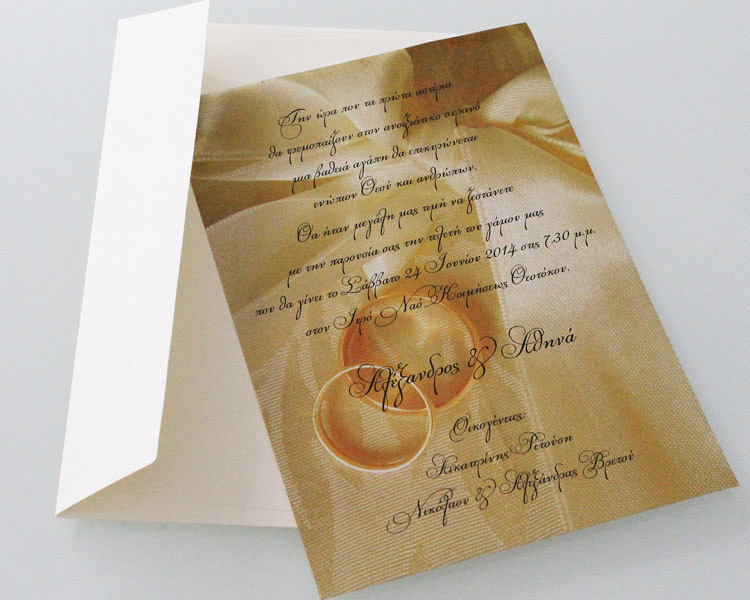 Την ώρα που τα πρώτα αστέρια
θα τρεμοπαίζουν στον ανοιξιάτικο ουρανό
μια βαθειά αγάπη θα επικυρώνεται
ενώπιον Θεού και ανθρώπων.
Θα ήταν μεγάλη μας τιμή να ζεστάνετε
με την παρουσία σας την τελετή του γάμου μας
που θα γίνει το Σάββατο 24 Ιουνίου 2014 στις 7.30 μ.μ.
στον Ιερό Ναό Κοιμήσεως Θεοτόκου.
Αλέξανδρος & Αθηνά
Οικογένειες:
Αικατερίνης Ρετούση
Νικόλαου & Αλεξάνδρας Βρεττού